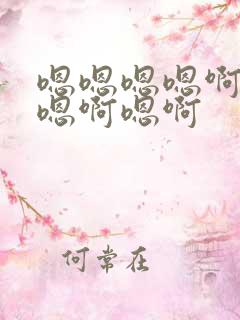 嗯嗯嗯嗯啊
嗯啊嗯啊
何常在